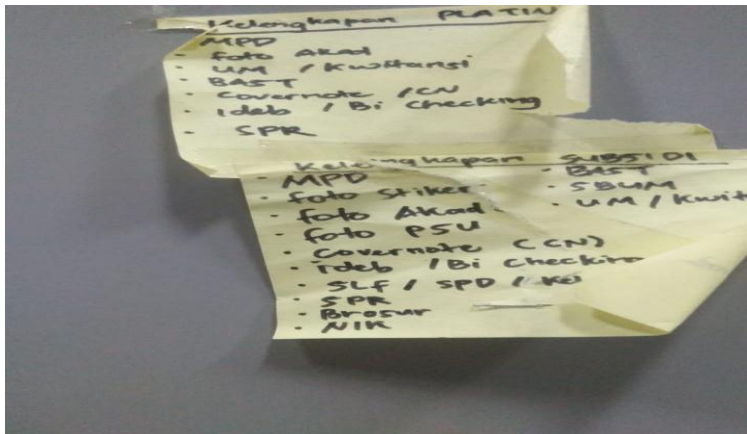 Kelengkapan PLATIN
• MPD
• foto Akad
• UM / Kwitansi
• BAST
• Covernote / CN
• Ideb / Bi Checking
• SPR
Kelengkapan SUBSIDI
• MPD
• foto Stiker
• foto Akad
• foto PSU
• Covernote (CN)
• ideb / Bi Checking
• SLF / SPD /
• SPR
• Brosur
• NIK
• BAST
• SBUM
• UM / Kwit